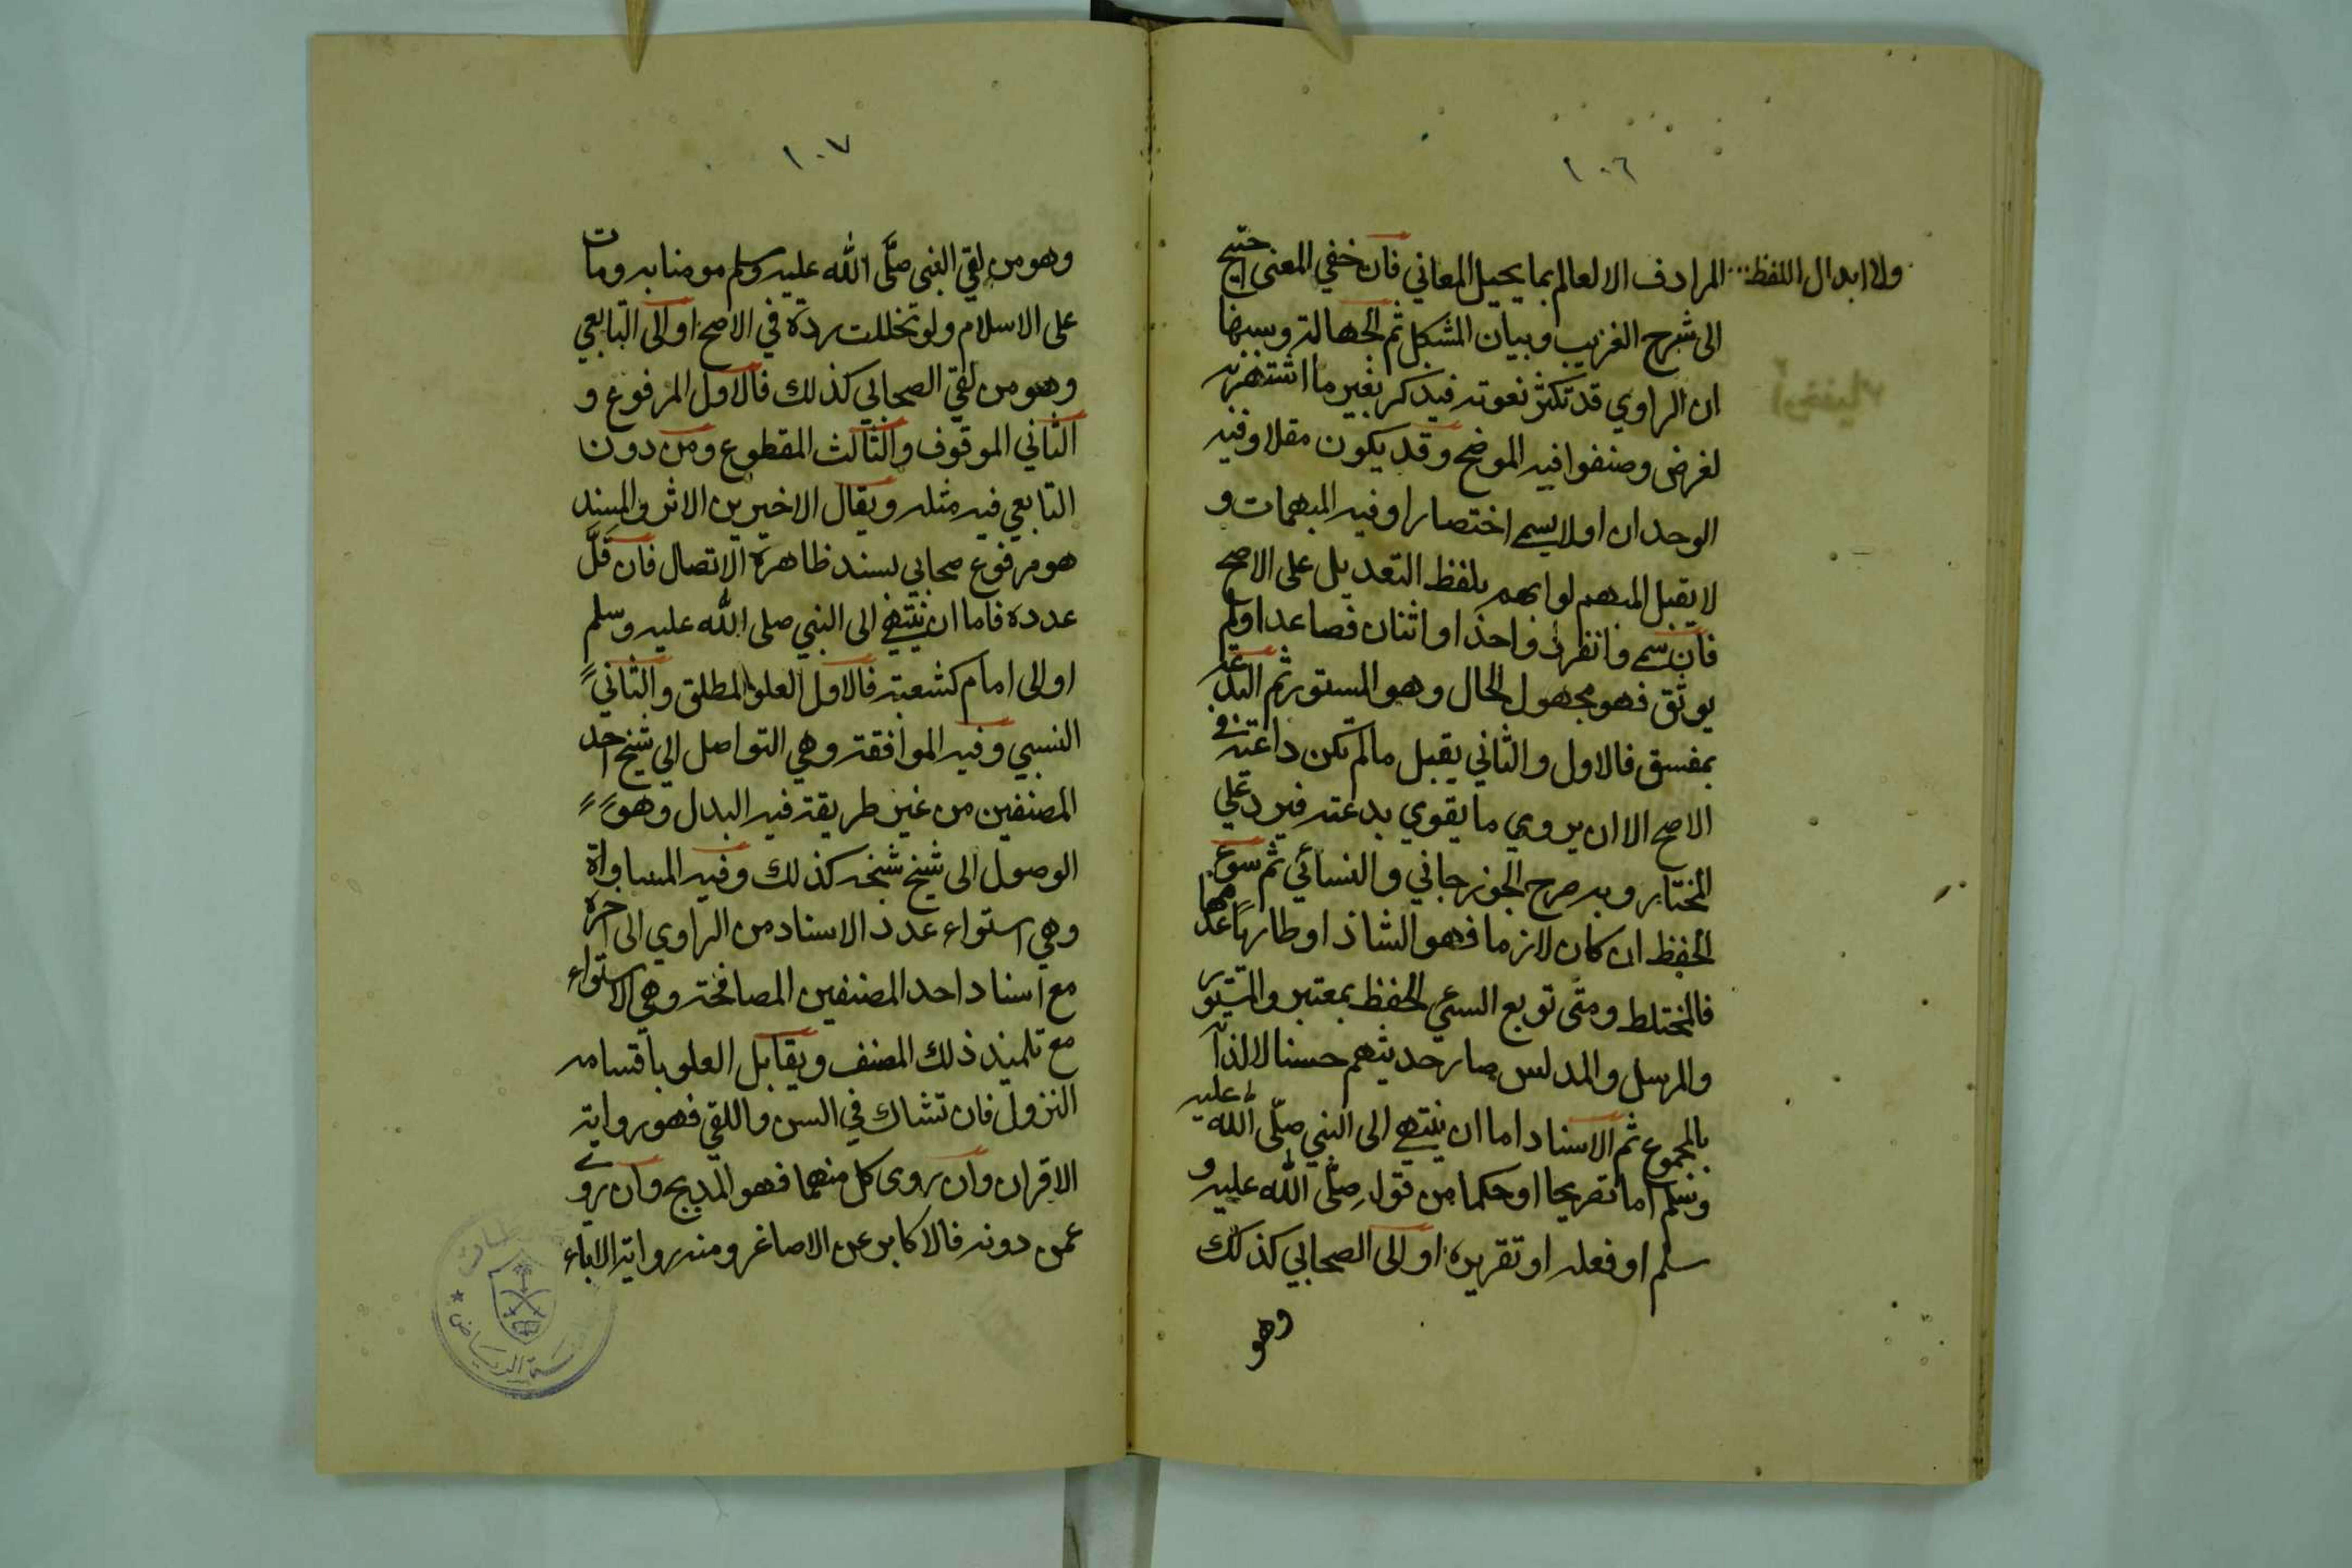 ١٠٦
ولا ابدال اللفظ... المرادف الا لعالم بما يحيل المعاني فان خفي المعنى احتيج
الى شرح الغريب وبيان المشكل ثم الجهالة وسببها
ان الراوي قد تكثر نعوته فيذكر بغير ما اشتهر به
لغرض وصنفوا فيه الموضح وقد يكون مقلا وفيه
الوحدان او لا يسمى اختصارا وفيه المبهمات و
لا يقبل المبهم لو ابهم بلفظ التعديل على الاصح
فان سمي وانفرد واحد او اثنان فصاعدا ولم
يوثق فهو مجهول الحال وهو المستور ثم البدعة
بمفسق فالاول والثاني يقبل مالم تكن داعية في
الاصح الا ان يروي ما يقوي بدعته فيرد على
المختار وبه صرح الجوزجاني والنسائي ثم سوء
الحفظ ان كان لازما فهو الشاذ او طارئا
فالمختلط ومتى توبع السيئ الحفظ بمعتبر والمستور
والمرسل والمدلس صار حديثهم حسنا لا لذاته
بالمجموع ثم الاسناد اما ان ينتهي الى النبي صلى الله عليه
وسلم اما تصريحا او حكما من قوله صلى الله عليه و
سلم او فعله او تقريره او الى الصحابي كذلك
وهو
١٠٧
وهو من لقي النبي صلَّى الله عليه وسلم مومنا به ومات
على الاسلام ولو تخللت ردة في الاصح او الى التابعي
وهو من لقي الصحابي كذلك فالاول المرفوع و
الثاني الموقوف والثالث المقطوع ومن دون
التابعي فيه مثله ويقال الاخيرين الاثر والمسند
هو مرفوع صحابي بسند ظاهرة الاتصال فان قلَّ
عدده فاما ان ينتهي الى النبي صلى الله عليه وسلم
او الى امام كشعبة فالاول العلو المطلق والثاني
النسبي وفيه الموافقة وهي التواصل الي شيخ احد
المصنفين من غير طريقة فيه البدل وهو
الوصول الى شيخ شيخه كذلك وفيه المساواة
وهي استواء عدد الاسناد من الراوي الى آخره
مع اسناد احد المصنفين المصافحة وهي الاستواء
مع تلميذ ذلك المصنف ويقابل العلو باقسامه
النزول فان تشاك في السن واللقي فهو رواية
الاقران وان روى كل منهما فهو المدبج وان روى
عمن دونه فالاكابر عن الاصاغر ومنه رواية الاباء